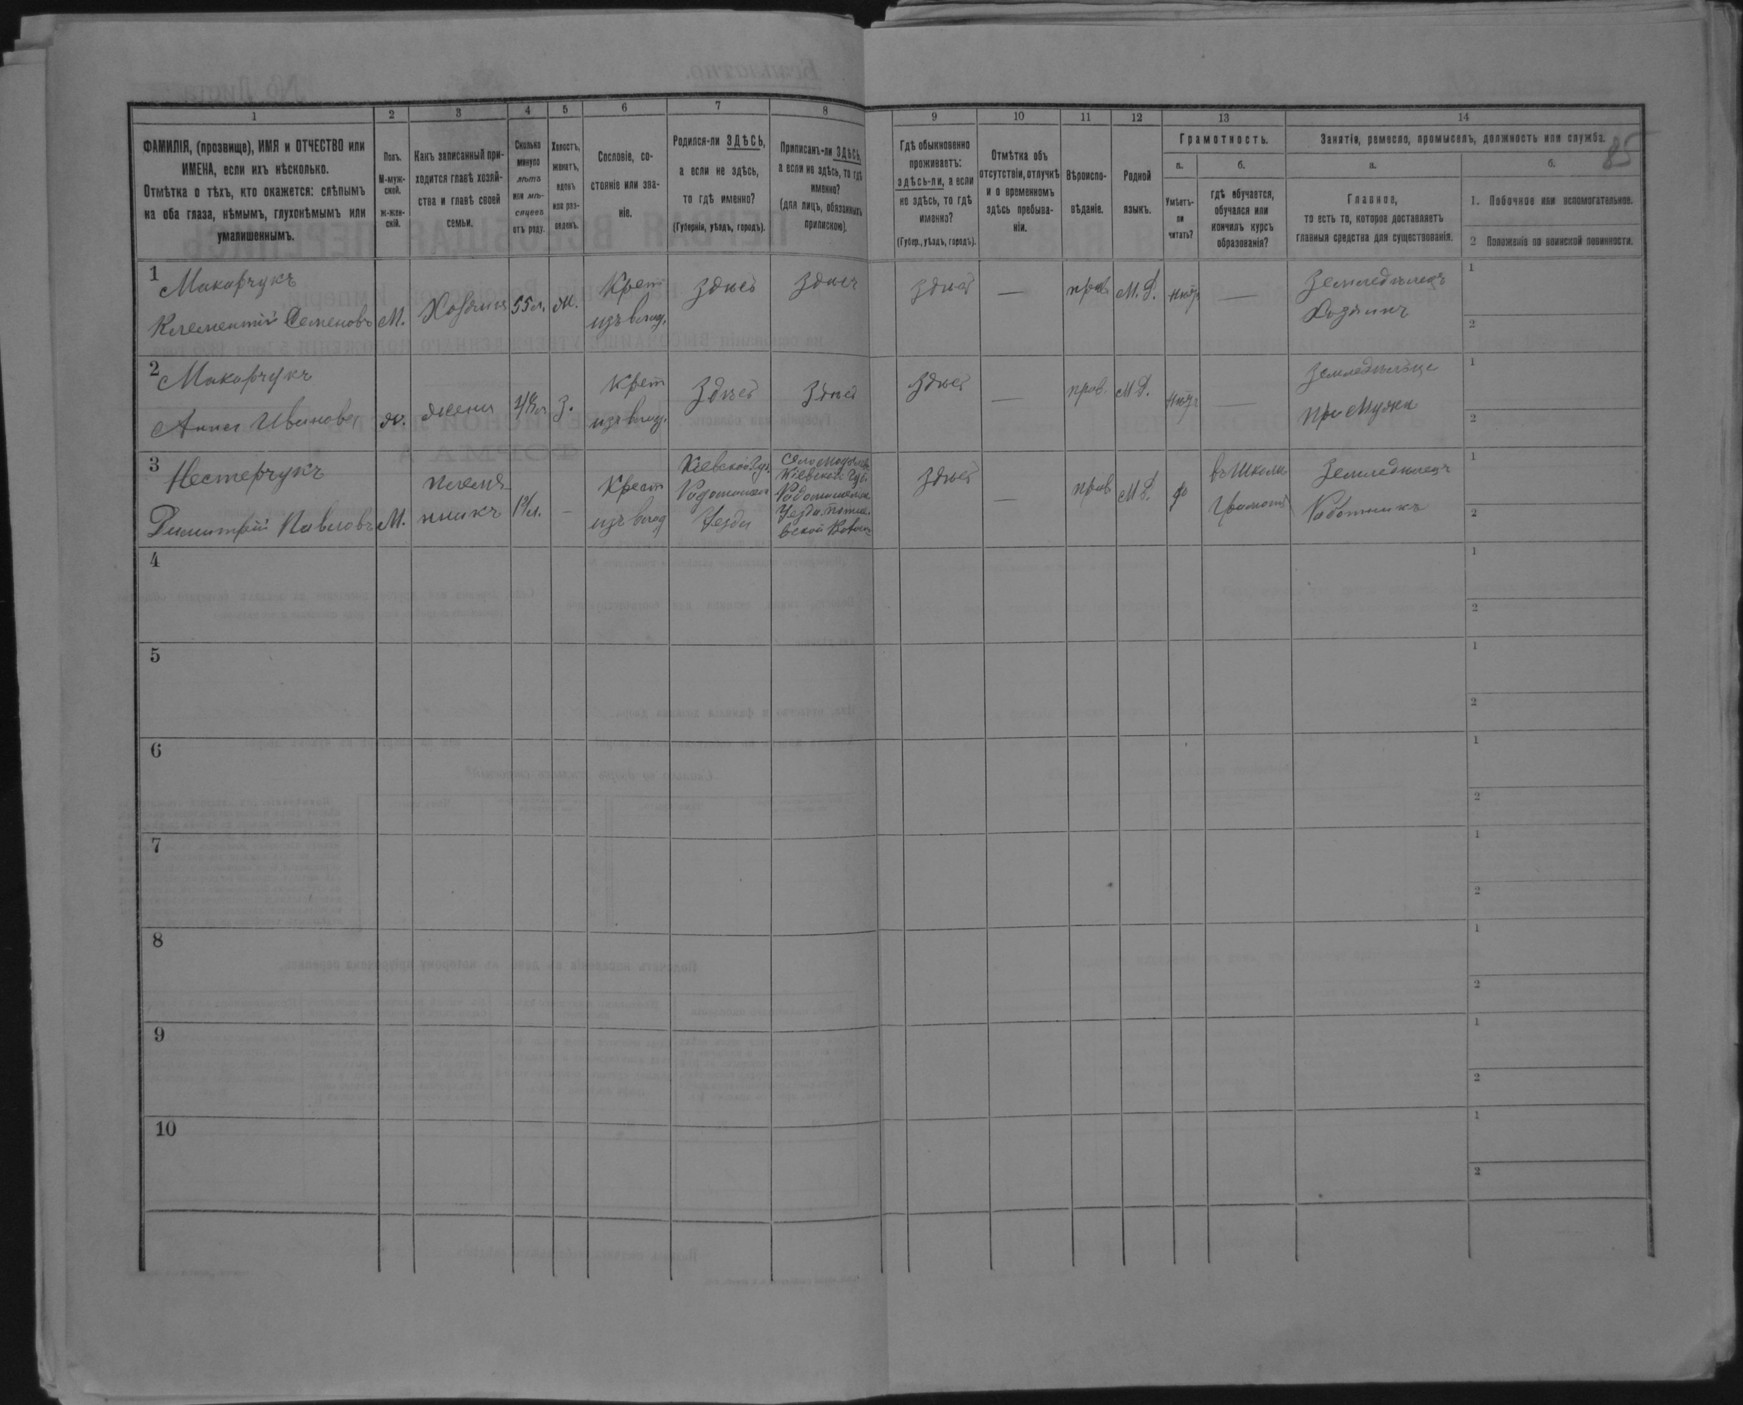 85
1
2
3
4
5
6
7
8
9
10
11
12
13
14
ФАМИЛІЯ, (прозвище), ИМЯ и ОТЧЕСТВО или
ИМЕНА, если ихъ нѣсколько.
Отмѣтка о тѣхъ, кто окажется: слѣпымъ
на оба глаза, нѣмымъ, глухонѣмымъ или
умалишеннымъ.
Полъ.
М-муж-
ской.
Ж-жен-
скій.
Какъ записанный при-
ходится главѣ хозяй-
ства и главѣ своей
семьи.
Сколько
минуло
лѣтъ
или мѣ-
сяцевъ
отъ роду.
Холостъ,
женатъ,
вдовъ
или раз-
веденъ.
Сословіе, со-
стояніе или зва-
ніе.
Родился-ли ЗДѢСЬ,
а если не здѣсь,
то гдѣ именно?
(Губернія, уѣздъ, городъ).
Приписанъ-ли ЗДѢСЬ,
а если не здѣсь, то гдѣ
именно?
(для лицъ, обязанныхъ
припискою).
Гдѣ обыкновенно
проживаетъ:
здѣсь-ли, а если
не здѣсь, то гдѣ
именно?
(Губер., уѣздъ, городъ).
Отмѣтка объ
отсутствіи, отлучкѣ
и о временномъ
здѣсь пребыва-
ніи.
Вѣроиспо-
вѣданіе.
Родной
языкъ.
Грамотность.
а.
Умѣетъ-
ли
читать?
б.
гдѣ обучается,
обучался или
кончилъ курсъ
образованія?
Занятія, ремесло, промыселъ, должность или служба.
а.
Главное,
то есть то, которое доставляетъ
главныя средства для существованія.
б.
1. Побочное или вспомогательное.
2 Положеніе по воинской повинности.
1
Макарчукъ
Климентій Семеновъ
М.
Хозяинъ
55л.
ж.
Крест
изъ влад.
Здѣсь
Здѣсь
Здѣсь
—
прав
М.Р.
нѣтъ
—
Земледѣлецъ
Хозяинъ
1
2
2
Макарчукъ
Анна Иванова
ж.
жена
з.
Крест
изъ влад.
Здѣсь
Здѣсь
Здѣсь
—
прав.
М.Р.
нѣтъ
—
Земледѣліе
При Мужѣ
1
2
3
Нестерчукъ
Димитрій Павловъ
М.
племя
нникъ
—
Крест
изъ влад
Кіевской Губ
Радомышл
Уезда
Село
Кіевской Губ.
Радомышл
Уезда
Здѣсь
—
прав
М.Р.
въ Школи
Грамоты
Земледѣлецъ
Работникъ
1
2
4
1
2
5
1
2
6
1
2
7
1
2
8
1
2
9
1
2
10
1
2